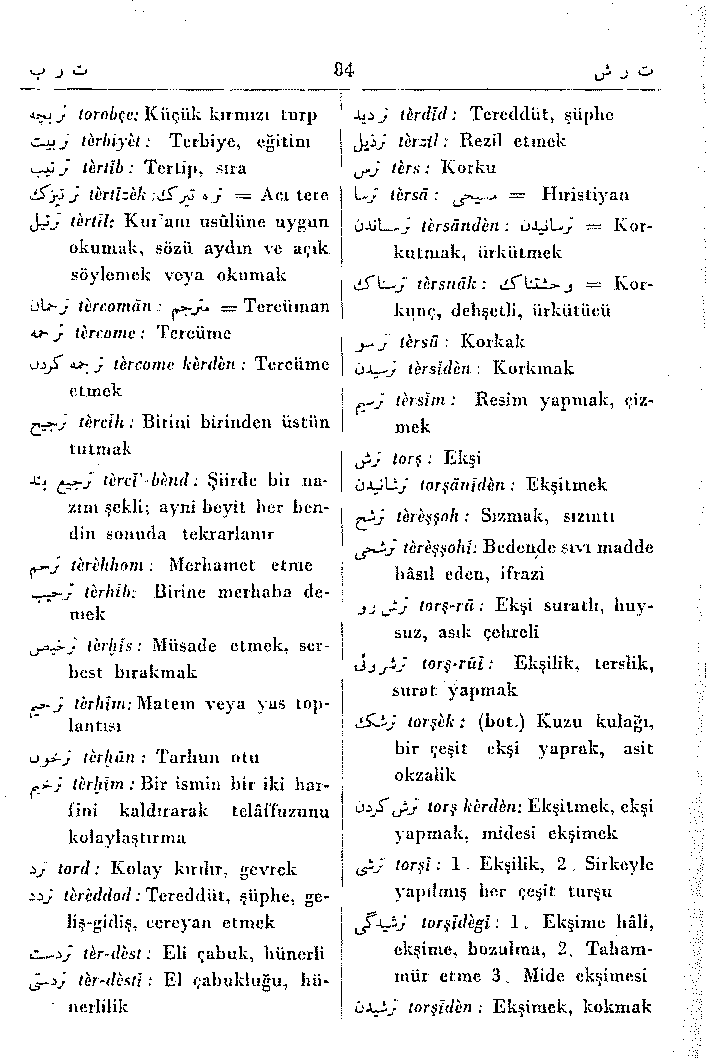 ت ر ب 84 ت ر ش
تربچه torobçe: Küçük kırmızı turp
تربیت tèrbiyèt: Terbiye, eğitim
ترتیب tèrtîb: Tertip, sıra
ترتیزك tèrtîzèk: تره تیزك = Acı tere
ترتیل tèrtîl: Kur'anı usûlüne uygun
okumak, sözü aydın ve açık
söylemek veya okumak
ترجمان tèrcomân: مترجم = Tercüman
ترجمه tèrcome: Tercüme
ترجمه کردن tèrcome kèrdèn: Tercüme
etmek
ترجیح tèrcîh: Birini birinden üstün
tutmak
ترجیع بند tèrcî'-bènd: Şiirde bir na-
zım şekli; ayni beyit her ben-
din sonuda tekrarlanır
ترحم tèrèhhom: Merhamet etme
ترحیب tèrhîb: Birine merhaba de-
mek
ترخیص tèrhîs: Müsade etmek, ser-
best bırakmak
ترحیم tèrhîm: Matem veya yas top-
lantısı
ترخون tèrhûn: Tarhun otu
ترخیم tèrhîm: Bir ismin bir iki har-
fini kaldırarak telâffuzunu
kolaylaştırma
ترد tord: Kolay kırılır, gevrek
تردد tèrèddod: Tereddüt, şüphe, ge-
liş-gidiş, cereyan etmek
تردست tèr-dèst: Eli çabuk, hünerli
تردستی tèr-dèstî: El çabukluğu, hü-
nerlilik
تردید tèrdîd: Tereddüt, şüphe
ترذیل tèrzîl: Rezil etmek
ترس tèrs: Korku
ترسا tèrsâ: مسیحی = Hıristiyan
ترساندن tèrsândèn: ترسانیدن = Kor-
kutmak, ürkütmek
ترسناك tèrsnâk: وحشتناك = Kor-
kunç, dehşetli, ürkütücü
ترسو tèrsû: Korkak
ترسیدن tèrsîdèn: Korkmak
ترسیم tèrsîm: Resim yapmak, çiz-
mek
ترش torş: Ekşi
ترشانیدن torşânîdèn: Ekşitmek
ترشح tèrèşşoh: Sızmak, sızıntı
ترشحی tèrèşşohî: Bedende sıvı madde
hâsıl eden, ifrazi
ترش رو torş-rû: Ekşi suratlı, huy-
suz, asık çehreli
ترشروئی torş-rûî: Ekşilik, terslik,
surat yapmak
ترشك torşèk: (bot.) Kuzu kulağı,
bir çeşit ekşi yaprak, asit
okzalik
ترش کردن torş kèrdèn: Ekşitmek, ekşi
yapmak, midesi ekşimek
ترشی torşî: 1. Ekşilik, 2. Sirkeyle
yapılmış her çeşit turşu
ترشیدگی torşîdègî: 1. Ekşime hâli,
ekşime, bozulma, 2. Taham-
mür etme 3. Mide ekşimesi
ترشیدن torşîdèn: Ekşimek, kokmak